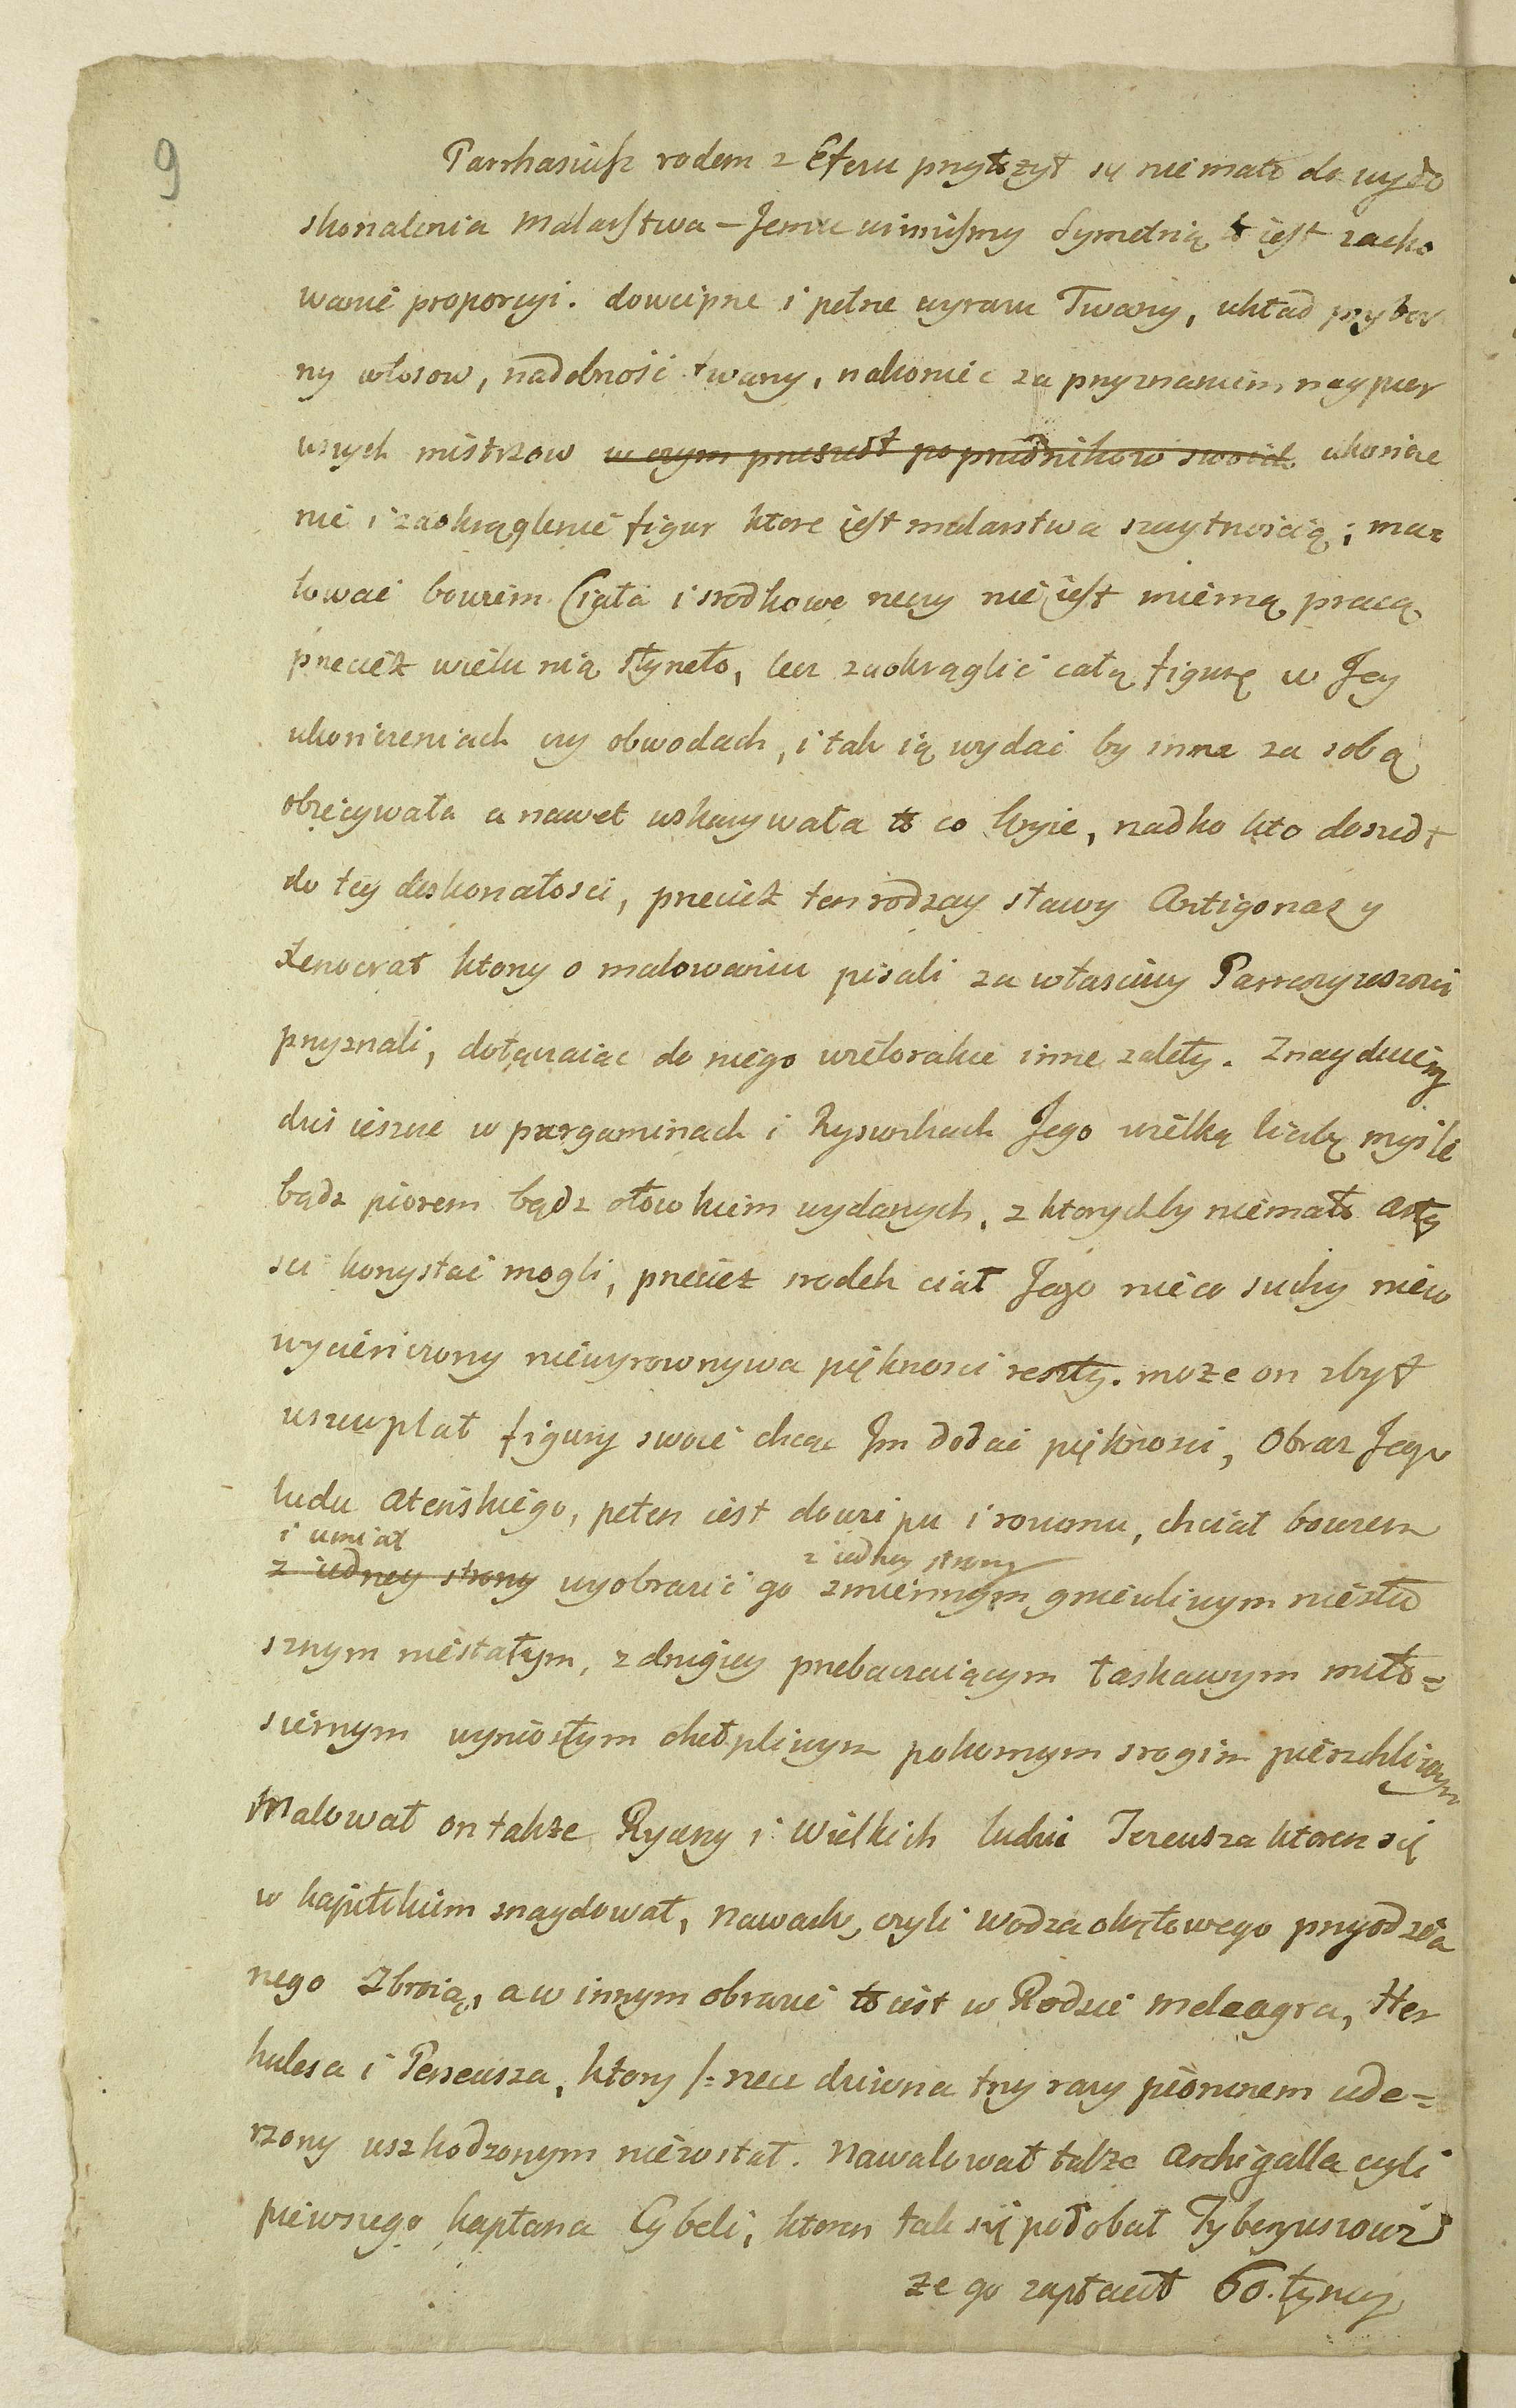 9
Parrhasiusz rodem z Efezu przyłożył się nie mało do wydo
skonalenia Malarstwa – Jemu winniśmy Symetrią to iest zacho
wanie proporcyi. dowcipne i pełne wyrazu Twarzy, układ przybor
ny włosow, nadobność twarzy, nakoniec za przyznaniem naypier
wszych mistrzow w czym przeszedł poprzednikow swoich ukoncze
nie i zaokrąglenie figur ktore iest malarstwa szczytnością; ma=
lować bowiem Ciała i srodkowe rzeczy nie iest mierną pracą
przecież wielu nią słyneło, lecz zaokrąglić całą figurę w Jey
ukonczeniach czy obwodach, i tak ią wydać by inne za sobą
obiecywała a nawet wskazywała to co kryie, rzadko kto doszedł
do tey doskonałosci, przecież ten rodzay sławy Antigonas y
Xenocrat ktorzy o malowaniu pisali za własciwy Parrazyuszowi
przyznali, dołączaiąc do niego wielorakie inne zalety. Znayduiem
dziś ieszcze w pargaminach i Rysunkach Jego wielką liczbę mysli
bądz piorem bądz ołowkiem wydanych, z ktorychby niemało Arty
sci korzystać mogli, przecież srodek ciał Jego nieco suchy nieco
wycieńczony niewyrownywa piękności reszty. może on zbyt
uszczuplał figury swoie chcąc Im dodać piękności, Obraz Jego
ludu Ateńskiego, pełen iest dowcipu i rozumu, chciał bowiem
i umiał z iedney strony
z iedney strony wyobrazić go zmiennym gniewliwym niesłu
sznym niestałym, z drugiey przebaczaiącym łaskawym miło=
siernym wyniosłym chełpliwym pokornym srogim pierzchliwym
Malował on także Rycerzy i Wielkich ludzi Tezeusza ktoren się
w kapitolium znaydował, Nawarch, czyli Wodza okrętowego przyodzia
nego Zbroią, a w innym obrazie to iest w Rodzie Meleagra, Her
kulesa i Perseusza, ktory /= rzecz dziwna trzy razy piorunem ude=
rzony uszkodzonym niezostał. Nawalował także Archigalla czyli
pierwszego kapłana Cybeli, ktoren tak się podobał Tyberyuszowi
że go zapłacił 60. tyncy